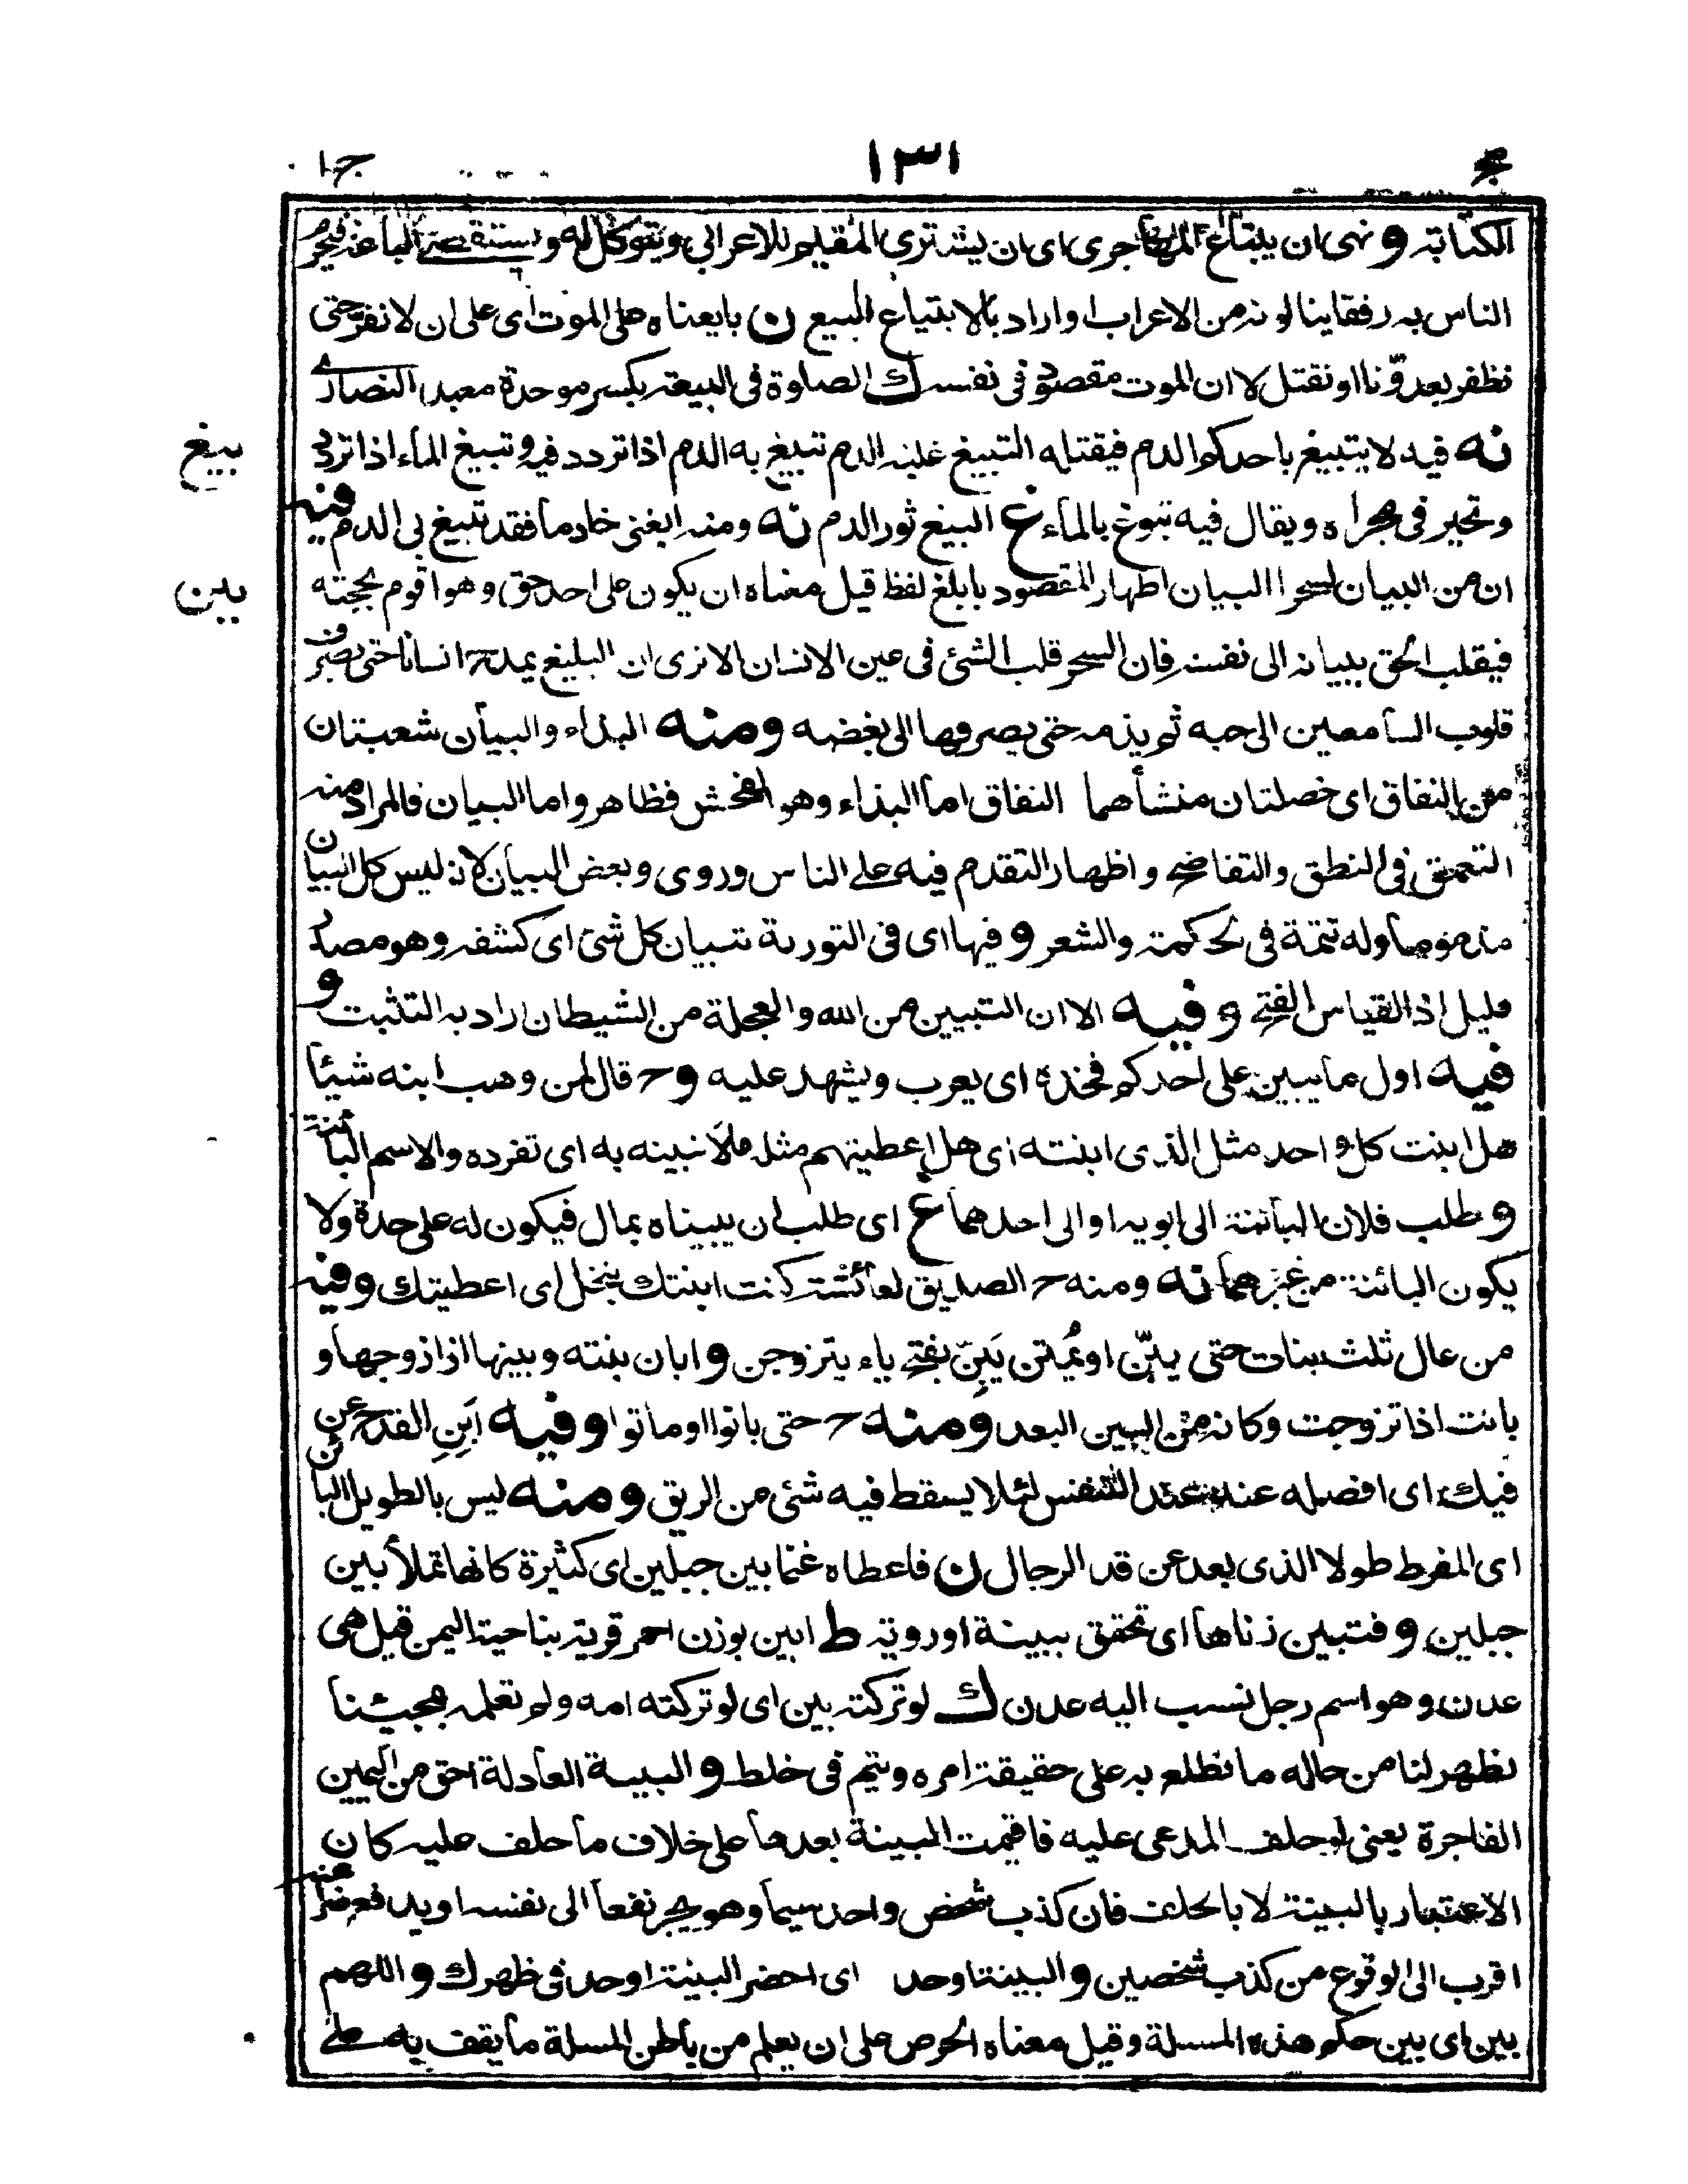 ج ١٣١ ج١
الكتابة و نهى ان يبتاع المهاجرى اى ان يشترى المقيم للاعرابي ويتوكل له و يستقصى البائع فيحرم
الناس به رفقا ينالونه من الاعراب واراد بالابتياع البيع ن بايعناه على الموت اى على ان لا نفر حتى
نظفر بعدونا او نقتل لا ان الموت مقصود فى نفسه ك الصلوة فى البيعة بكسر موحدة معبد النصارى
بيغ
نه فيه لا يتبيغ باحدكم الدم فيقتله التبيغ غلبة الدم تبيغ به الدم اذا تردد فيه و تبيغ الماء اذا تردد
وتحير فى مجراه و يقال فيه تبوغ بالماء غ البيغ ثور الدم نه ومنه ابغنى خادما فقد تبيغ بى الدم فيه
بين
ان من البيان لسحرا البيان اظهار المقصود بابلغ لفظ قيل معناه ان يكون على احد حق و هو اقوم بحجته
فيقلب الحق ببيانه الى نفسه فان السحر قلب الشئ فى عين الانسان الا ترى ان البليغ يمدح انسانا حتى يصرف
قلوب السامعين الى حبه ثم يذمه حتى يصرفها الى بغضه ومنه البذاء والبيان شعبتان
من النفاق اى خصلتان منشأهما النفاق اما البذاء وهو الفحش فظاهر واما البيان فالمراد منه
التعمق فى النطق والتفاصح و اظهار التقدم فيه على الناس وروى و بعض البيان لانه ليس كل البيان
مذموما وله تتمة فى الحكمة والشعر و فيها اى فى التورية تبيان كل شئ اى كشفه وهو مصدر
قليل اذ القياس الفتح و فيه الا ان التبيين من الله والعجلة من الشيطان اراد به التثبت و
فيه اول ما يبين على احدكم فخذه اى يعرب و يشهد عليه و ح قال لمن وهب ابنه شيئا
هل ابنت كل واحد مثل الذى ابنته اى هل اعطيتهم مثله مالا نبينه به اى تفرده والاسم البائنة
و طلب فلان البائنة الى ابويه او الى احدهما غ اى طلب ان يبيناه بمال فيكون له على حدة ولا
يكون البائنة من غيرهما نه ومنه ح الصديق لعائشة كنت ابنتك بنخل اى اعطيتك و فيه
من عال ثلث بنات حتى يبنّ او يمتن يَبِنّ بفتح ياء يتزوجن و ابان بنته و بينها اذا زوجها و
بانت اذا تزوجت وكانه من البين البعد ومنه ح حتى بانوا او ماتوا وفيه اَبِنِ القدح عن
فيك اى افصله عنه عند التنفس لئلا يسقط فيه شئ من الريق ومنه ليس بالطويل البائن
اى المفرط طولا الذى بعد عن قد الرجال ن فاعطاه غنما بين جبلين اى كثيرة كانها تملأ بين
جبلين و فتبين زناها اى تحقق ببينة او روية ط ابين بوزن احمر قرية بناحية اليمن قيل هى
عدن و هو اسم رجل نسب اليه عدن ك لو تركته بين اى لو تركته امه ولم تعلمه بمجيئنا
لظهر لنا من حاله ما نطلع به على حقيقة امره ويتم فى خلط و البينة العادلة احق من اليمين
الفاجرة يعنى لو حلف المدعى عليه فاقيمت البينة بعدها على خلاف ما حلف عليه كان
الاعتبار بالبينة لا بالحلف فان كذب شخص واحد سيما وهو يجر نفعا الى نفسه او يدفع ضرا عنه
اقرب الى الوقوع من كذب شخصين و البينة او حد اى احضر البينة او حد فى ظهرك و اللهم
بين اى بين حكم هذه المسئلة و قيل معناه الحرص على ان يعلم من باطن المسئلة ما يقف به على